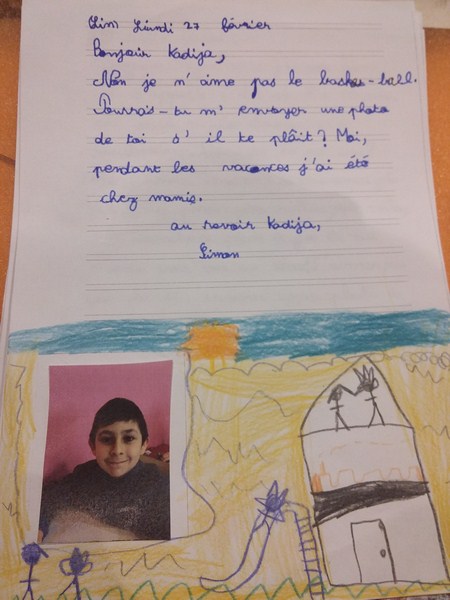 Lundi 27 février
Bonjour Kadija,
Non je n'aime pas le basket-ball.
Pourrais-tu m'envoyer une photo
de toi s'il te plâit? Moi,
pendant les vacances j'ai été
chez mamie.
au revoir Kadija,
Simon